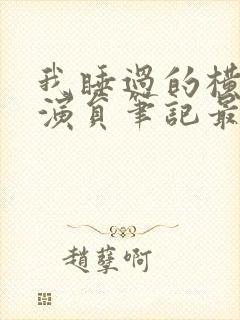 我睡過的橫
演員筆記最
趙孽啊